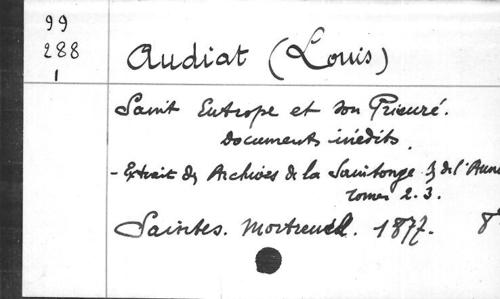 99
288
1
Audiat (Louis)
Saint Eutrope et son Prieuré.
Documents inédits.
- Extrait des Archives de la Saintonge & de l'Aunis
tomes 2.3.
Saintes. Mortreuil. 1877. 8°